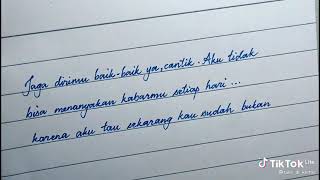 Jaga dirimu baik-baik ya, cantik. Aku tidak
bisa menanyakan kabarmu setiap hari ...
karena aku tau sekarang kau sudah bukan
TikTok Lite